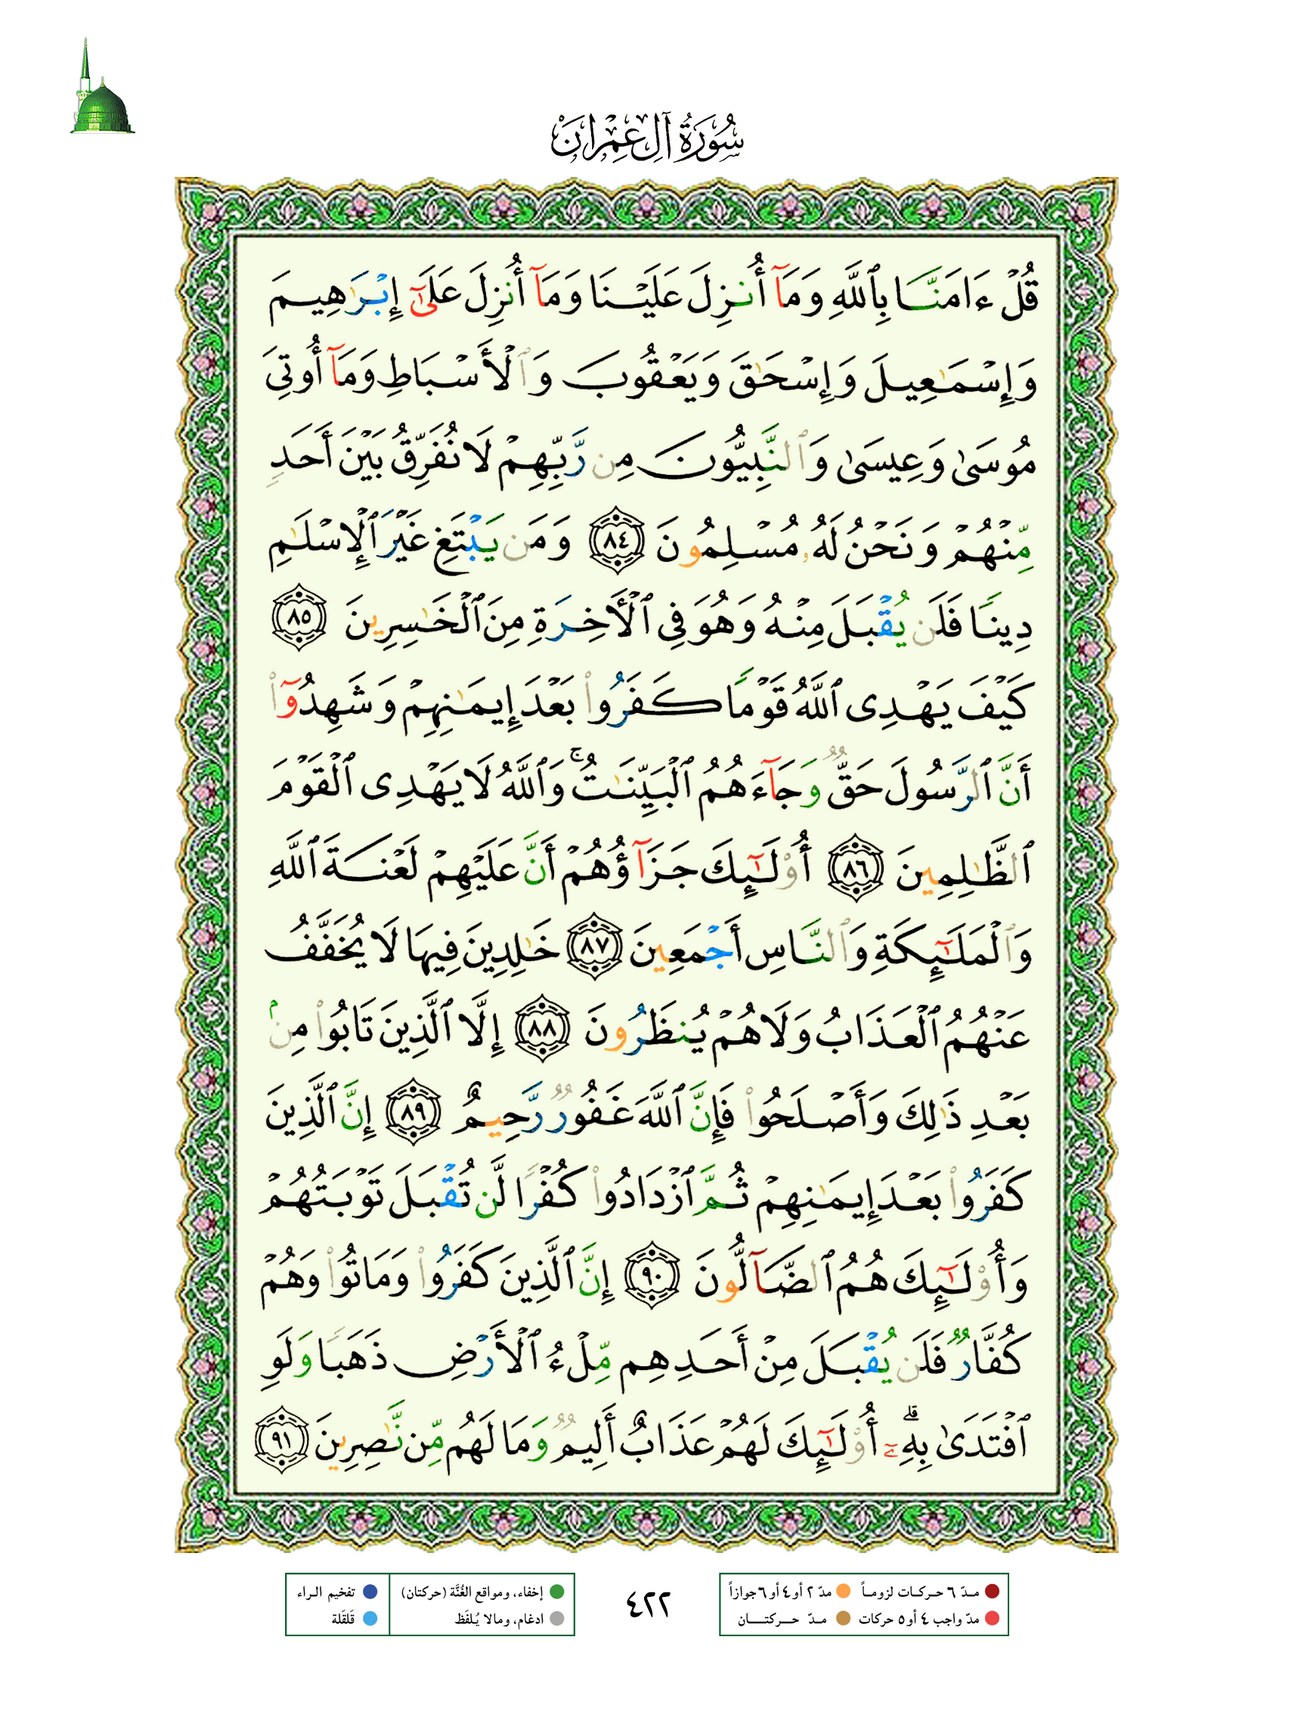 سُورَةُ آلِ عِمْرَان
قُلْ ءَامَنَّا بِٱللَّهِ وَمَآ أُنزِلَ عَلَيْنَا وَمَآ أُنزِلَ عَلَىٰٓ إِبْرَٰهِيمَ
وَإِسْمَٰعِيلَ وَإِسْحَٰقَ وَيَعْقُوبَ وَٱلْأَسْبَاطِ وَمَآ أُوتِىَ
مُوسَىٰ وَعِيسَىٰ وَٱلنَّبِيُّونَ مِن رَّبِّهِمْ لَا نُفَرِّقُ بَيْنَ أَحَدٍ
مِّنْهُمْ وَنَحْنُ لَهُۥ مُسْلِمُونَ ٨٤ وَمَن يَبْتَغِ غَيْرَ ٱلْإِسْلَٰمِ
دِينًا فَلَن يُقْبَلَ مِنْهُ وَهُوَ فِى ٱلْأَخِرَةِ مِنَ ٱلْخَٰسِرِينَ ٨٥
كَيْفَ يَهْدِى ٱللَّهُ قَوْمًا كَفَرُوا۟ بَعْدَ إِيمَٰنِهِمْ وَشَهِدُوٓا۟
أَنَّ ٱلرَّسُولَ حَقٌّ وَجَآءَهُمُ ٱلْبَيِّنَٰتُ ۚ وَٱللَّهُ لَا يَهْدِى ٱلْقَوْمَ
ٱلظَّٰلِمِينَ ٨٦ أُو۟لَٰٓئِكَ جَزَآؤُهُمْ أَنَّ عَلَيْهِمْ لَعْنَةَ ٱللَّهِ
وَٱلْمَلَٰٓئِكَةِ وَٱلنَّاسِ أَجْمَعِينَ ٨٧ خَٰلِدِينَ فِيهَا لَا يُخَفَّفُ
عَنْهُمُ ٱلْعَذَابُ وَلَا هُمْ يُنظَرُونَ ٨٨ إِلَّا ٱلَّذِينَ تَابُوا۟ مِنۢ
بَعْدِ ذَٰلِكَ وَأَصْلَحُوا۟ فَإِنَّ ٱللَّهَ غَفُورٌ رَّحِيمٌ ٨٩ إِنَّ ٱلَّذِينَ
كَفَرُوا۟ بَعْدَ إِيمَٰنِهِمْ ثُمَّ ٱزْدَادُوا۟ كُفْرًا لَّن تُقْبَلَ تَوْبَتُهُمْ
وَأُو۟لَٰٓئِكَ هُمُ ٱلضَّآلُّونَ ٩٠ إِنَّ ٱلَّذِينَ كَفَرُوا۟ وَمَاتُوا۟ وَهُمْ
كُفَّارٌ فَلَن يُقْبَلَ مِنْ أَحَدِهِم مِّلْءُ ٱلْأَرْضِ ذَهَبًا وَلَوِ
ٱفْتَدَىٰ بِهِۦٓ ۗ أُو۟لَٰٓئِكَ لَهُمْ عَذَابٌ أَلِيمٌ وَمَا لَهُم مِّن نَّٰصِرِينَ ٩١
مـدّ ٦ حـركـات لزومـاً مدّ ٢ أو ٤ أو ٦ جوازاً
مدّ واجب ٤ أو ٥ حركات مـدّ حــركتــــان
٤٢٢
إخفاء، ومواقع الغُنَّة (حركتان) تفخيم الـراء
ادغام، ومالا يُـلفَظ قَلقَلة